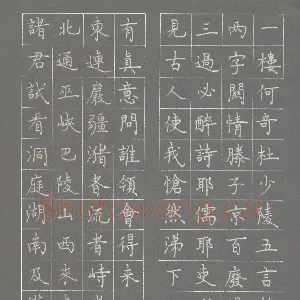 一樓何奇杜少陵五言
兩字關情滕子京百廢
三過必醉詩耶儒耶吏
見古人使我愴然涕下
有真意問誰領會得来
東連巖疆瀦者流者峙
北通巫峽巴陵山西來
諸君試看洞庭湖南及